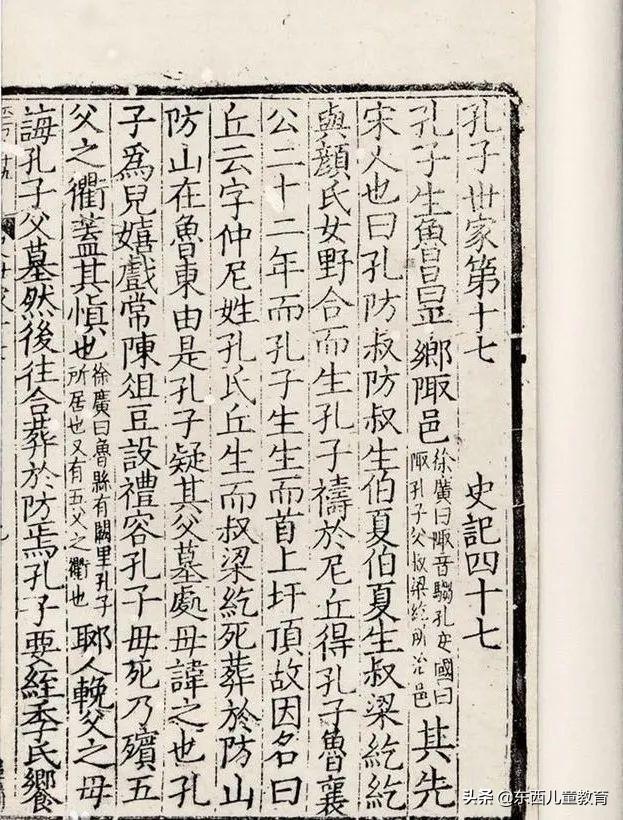 孔子世家第十七　史記四十七
孔子生魯昌平鄉陬邑徐廣曰陬音騶孔安國曰陬孔子父叔梁紇所治邑其先
宋人也曰孔防叔防叔生伯夏伯夏生叔梁紇紇
與顏氏女野合而生孔子禱於尼丘得孔子魯襄
公二十二年而孔子生生而首上圩頂故因名曰
丘云字仲尼姓孔氏丘生而叔梁紇死葬於防山
防山在魯東由是孔子疑其父墓處母諱之也孔
子爲兒嬉戲常陳俎豆設禮容孔子母死乃殯五
父之衢蓋其慎也徐廣曰魯縣有闕里孔子所居也又有五父之衢也郰人輓父之母
誨孔子父墓然後往合葬於防焉孔子要絰季氏饗
头条 @东西儿童教育